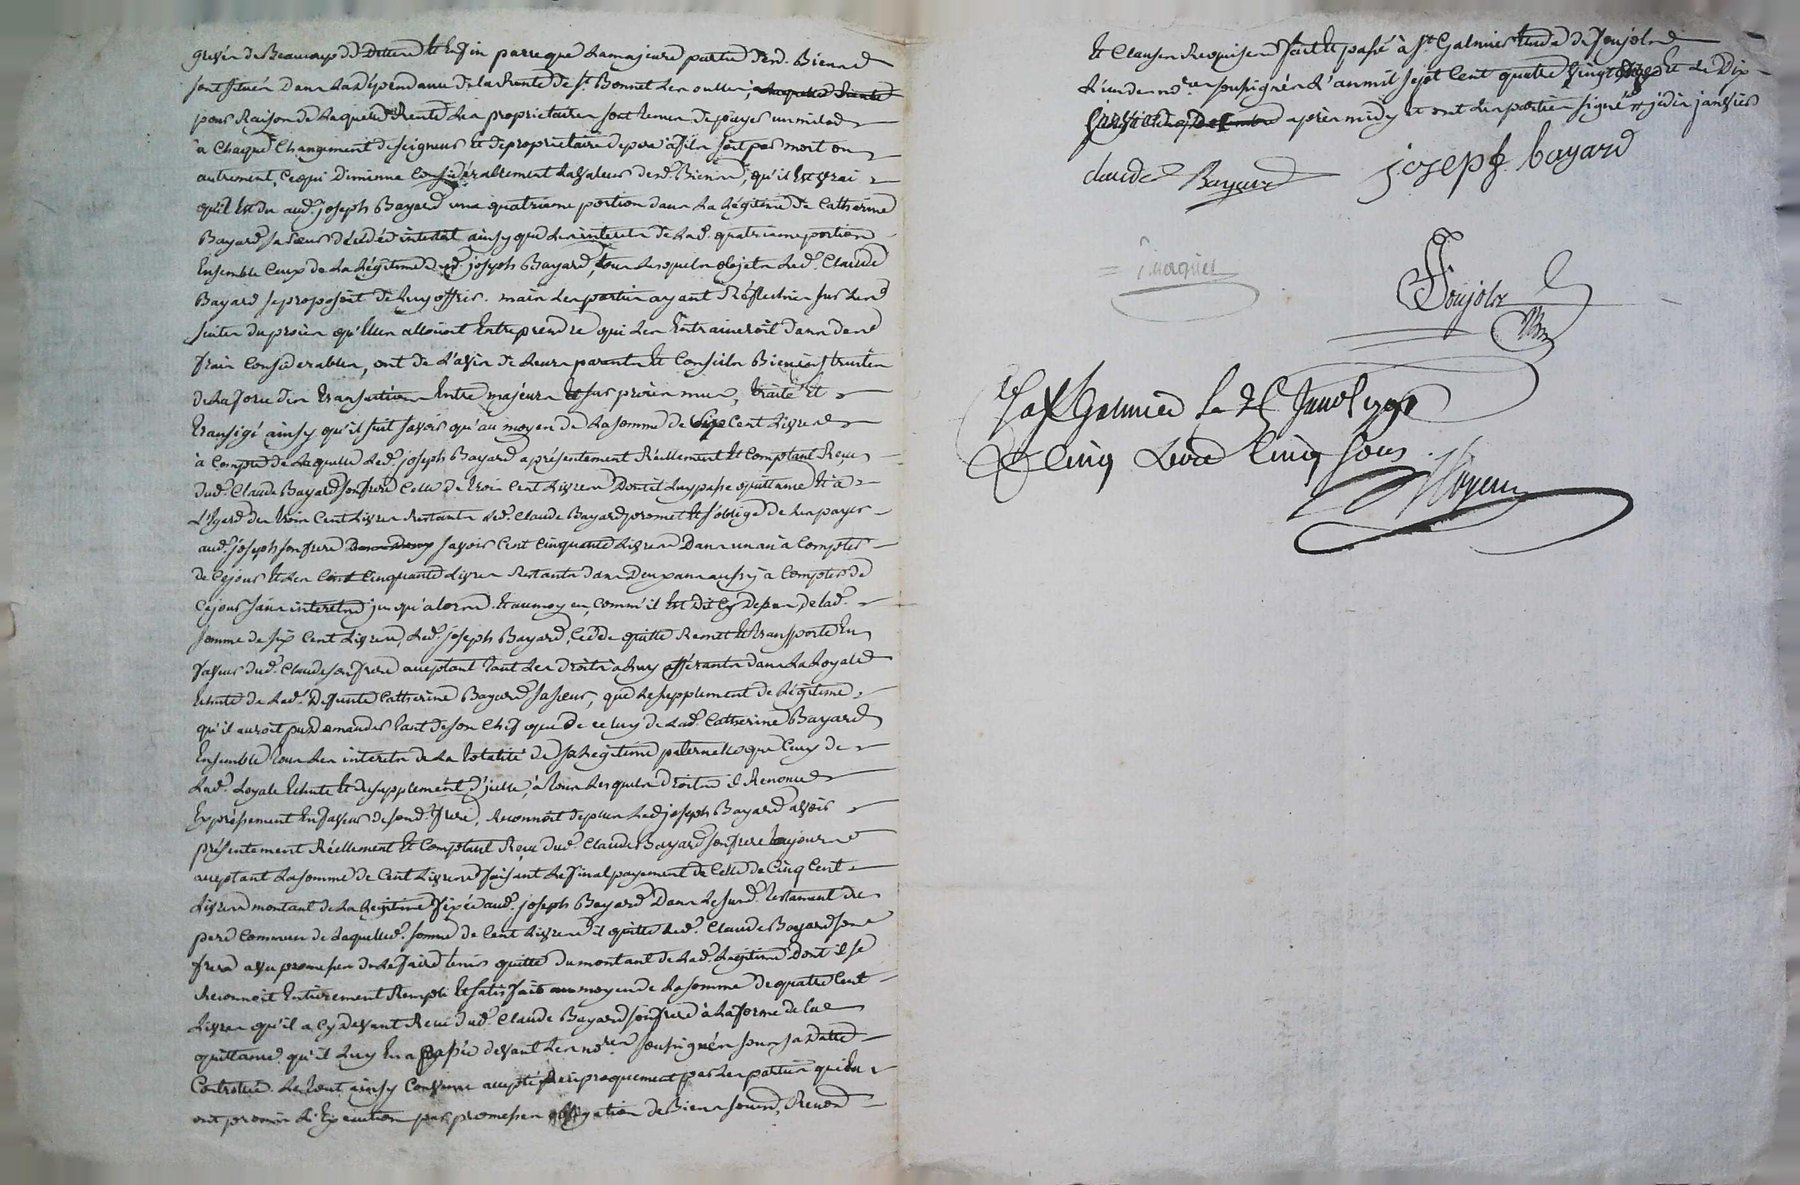 grevés de Beaucoup de Dettes Et Enfin parceque La majeure partie desd. Biens
sont situés Dans La dépendance de la Rente de St. Bonnet Les oulles, à laquelle Rente
pour Raison de Laquelle Rente Les proprietaires sont tenus de payer un milod
à Chaque Changement de seigneur Et de proprietaire de pere à fils soit par mort ou
autrement, Ce qui Diminue Considérablement La valeur desd. Biens, qu'il Est vrai
qu'il Est du aud. joseph Bayard une quatrieme portion dans La Légitime de Catherine
Bayard sa sœur décédée intestat ainsy que Les interets de Lad. quatrieme portion
Ensemble Ceux de La Légitime dud. joseph Bayard, tous Lesquels objets Led. Claude
Bayard se proposoit de Luy offrir. mais Les parties ayant Réflechies sur Les
suites du procès qu'Elles alloient Entreprendre qui Les Entraineroit dans des
frais Considerables, ont de L'avis de Leurs parents Et Conseils Bien instruites
de La force des transactions Entre majeurs Et sur procès mus, traité Et
transigé ainsy qu'il suit savoir qu'au moyen de La somme de Six Cent Livres
à Compte de Laquelle Led. joseph Bayard a présentement Réellement Et Comptant Reçu
dud. Claude Bayard son frere Celle de trois Cent Livres Dont il Luy passe quittance Et à
L'Egard des trois Cent Livres Restants Led. Claude Bayard promet Et s'oblige de Les payer
aud. joseph son frere savoir Cent Cinquante Livres Dans un an à Compter
de Ce jour Et Les Cent Cinquante Livres Restants dans Deux ans aussy à Compter de
Ce jour sans interets jusqu'alors. Et au moyen, Comm'il Est Dit Cy Dessus, de Lad.
somme de six Cent Livres, Led. joseph Bayard, Cede quitte Remet Et transporte En
faveur dud. Claude son frere acceptant tant Les droits à Luy afférants dans La Loyale
Echute de Lad. Defunte Catherine Bayard sa sœur, que Le supplement de Légitime
qu'il auroit pu demander tant de son Chef que de celuy de Lad. Catherine Bayard
Ensemble tous Les interets de La totalité de sa Légitime paternelle que Ceux de
Lad. Loyale Echute Et de supplement d'icelle, à tous Lesquels droits il Renonce
Expressement En faveur de sond. frere, Reconnoit de plus Led. joseph Bayard avoir
présentement Réellement Et Comptant Reçu dud. Claude Bayard son frere toujours
acceptant La somme de Cent Livres faisant Le final payement de Celle de Cinq Cent
Livres montant de La Légitime fixée aud. joseph Bayard Dans Le susd. testament du
pere Commun de Laquelle somme de Cent Livres il quitte Led. Claude Bayard son
frere avec promesses de Le faire tenir quitte du montant de Lad. Légitime dont il se
Reconnoit Entièrement Rempli Et satisfait au moyen de La somme de quatre Cent
Livres qu'il a Cy devant Reçu dud. Claude Bayard son frere à La forme de La
quittance qu'il Luy En a passée devant Les nores. soussignés sous sa Datte
Controlée. Le tout ainsy Convenu accepté Réciproquement par Les parties qui En
ont promis L'Execution par promesses obligation de Biens soumis, Renon
Et Clauses Requises fait Et passé à St. Galmier Etude de Soujols
L'un des nores soussignés L'an mil sept Cent quatre vingt Et Le Dix
après midy Et ont Les parties signé
claude Bayard joseph bayard
Soujols
à St Galmier Le Janv 1791
Cinq Livre Cinq sous